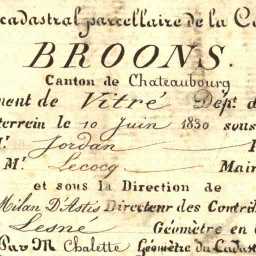 cadastral parcellaire de la C
BROONS.
Canton de Chateaubourg
ment de Vitré Dép. d
terrein le 10 Juin 1830 sous
Mr. Jordan
Mr. Lecocq Mair
et sous la Direction de
Milan D'Astis Directeur des Contrib
Lesne Géomètre en C
Par M Chalette Géomètre du Cadast